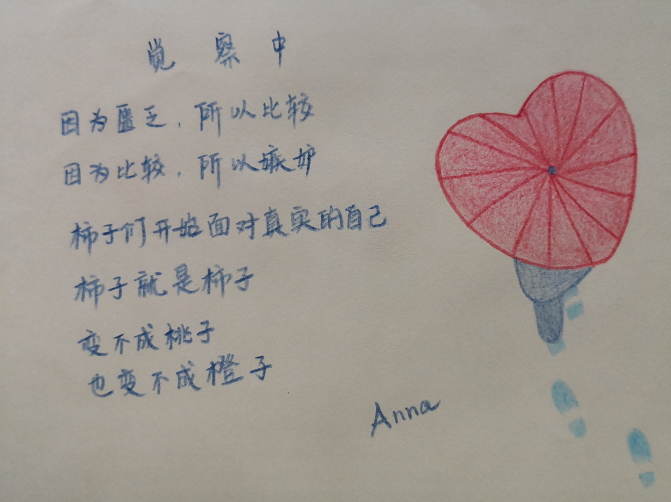 觉察中
因为匮乏，所以比较
因为比较，所以嫉妒
柿子们开始面对真实的自己
柿子就是柿子
变不成桃子
也变不成橙子
Anna